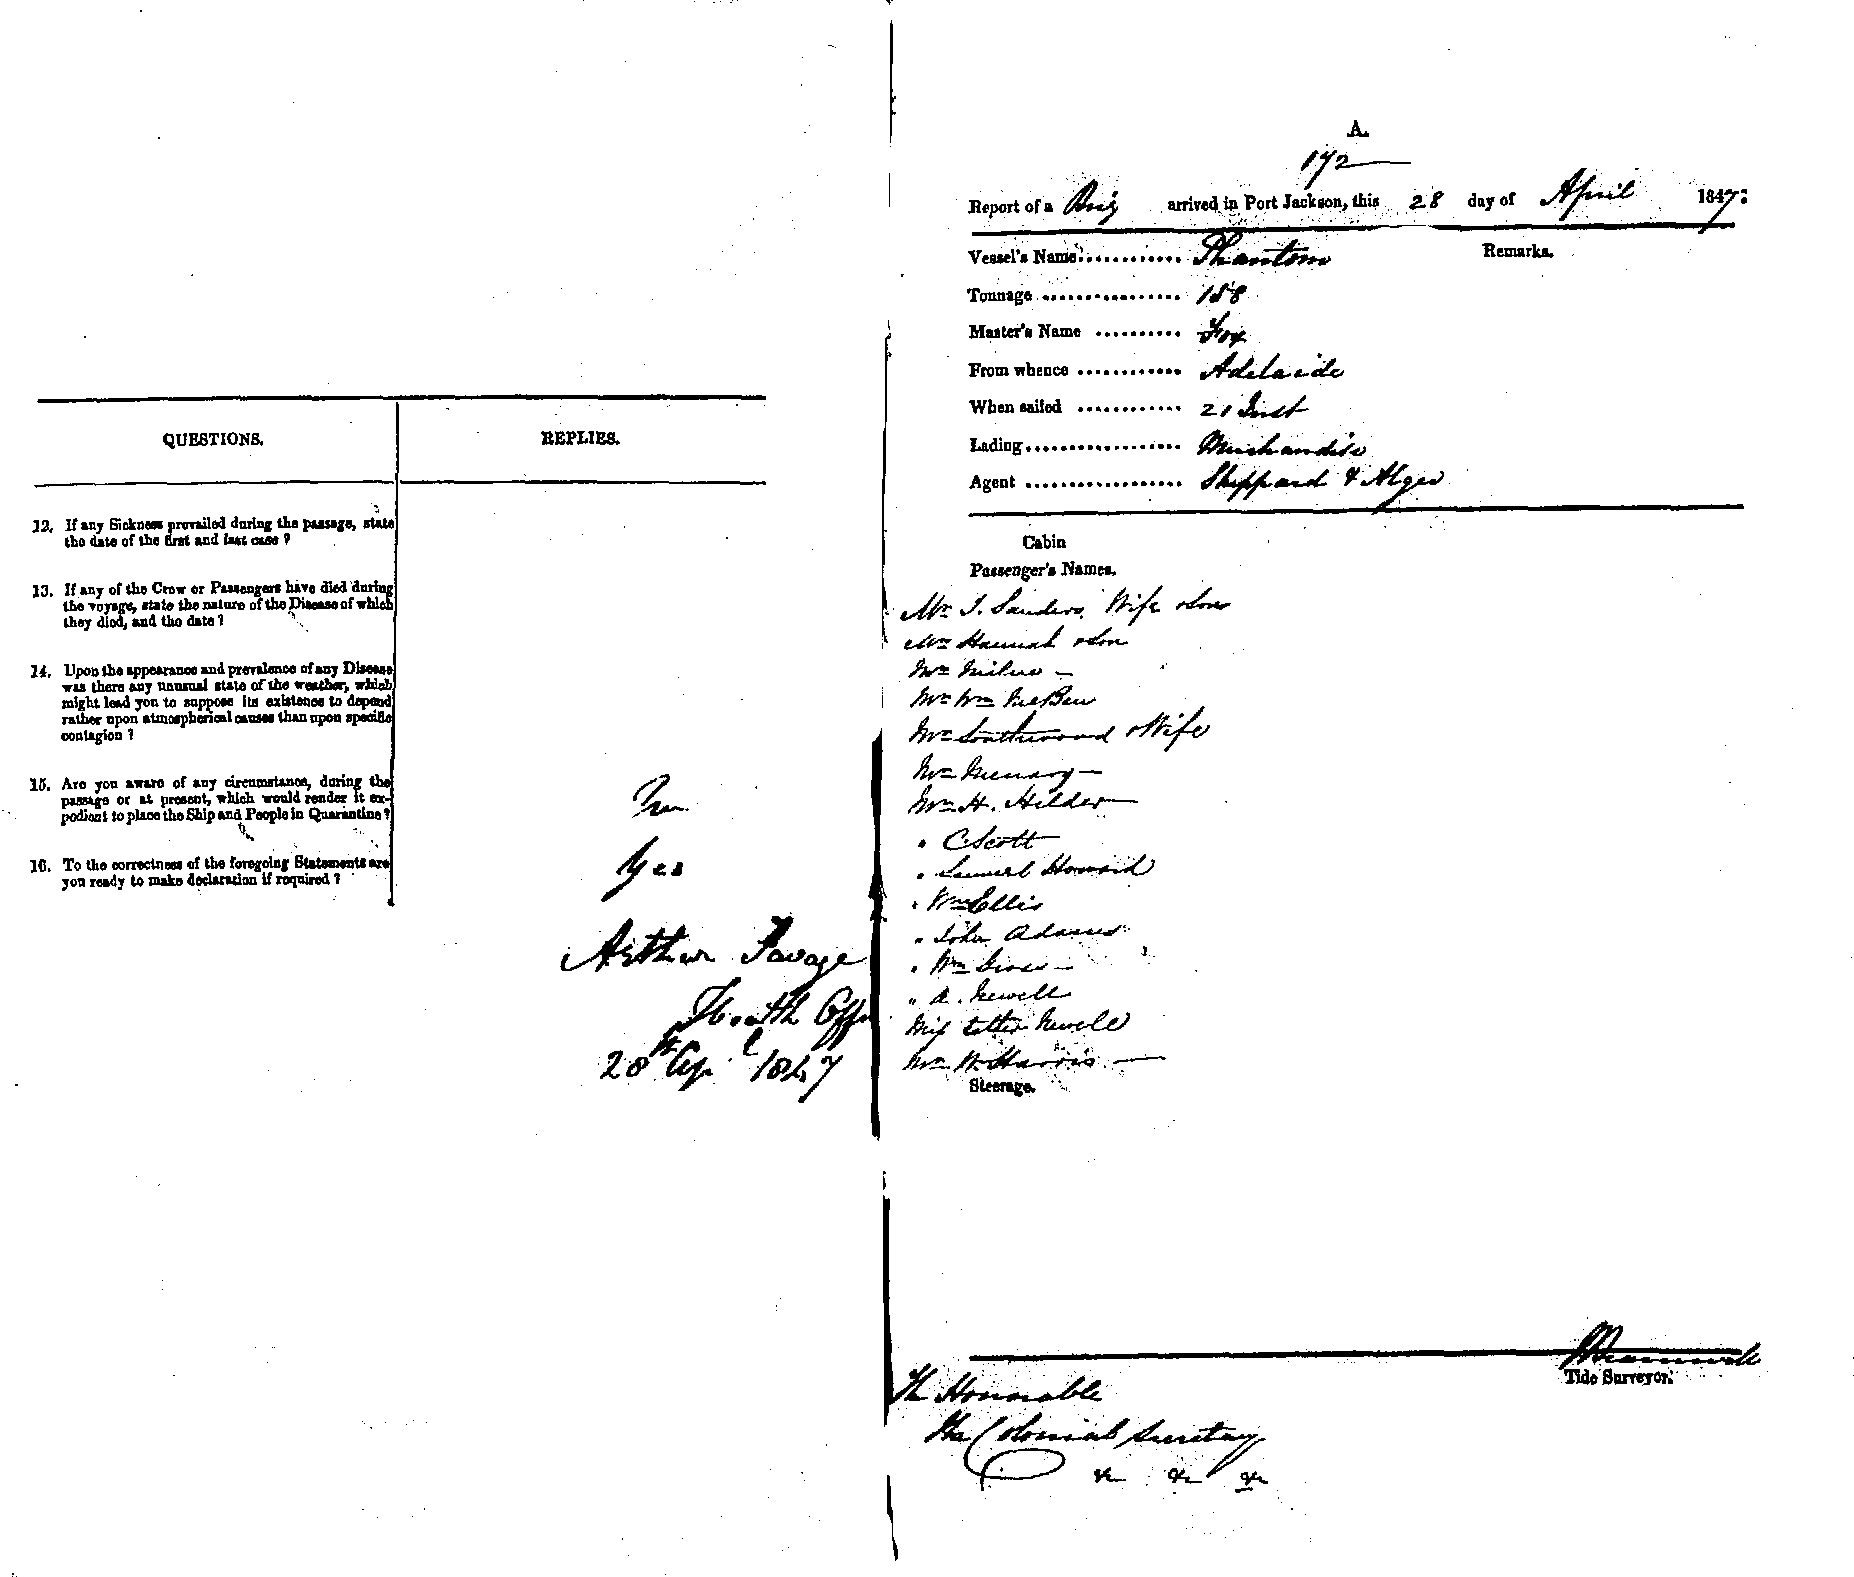 QUESTIONS. REPLIES.
12. If any Sickness prevailed during the passage, state
the date of the first and last case ?
13. If any of the Crew or Passengers have died during
the voyage, state the nature of the Disease of which
they died, and the date ?
14. Upon the appearance and prevalence of any Disease
was there any unusual state of the weather, which
might lead you to suppose its existence to depend
rather upon atmospherical causes than upon specific
contagion ?
15. Are you aware of any circumstance, during the
passage or at present, which would render it ex-
pedient to place the Ship and People in Quarantine ?
16. To the correctness of the foregoing Statements are
you ready to make declaration if required ?
Yes
Arthur Savage
Health Offr
28th Apl 1847
A.
172
Report of a Brig arrived in Port Jackson, this 28 day of April 1847:
Vessel's Name Phantom Remarks.
Tonnage 158
Master's Name Fox
From whence Adelaide
When sailed 21 Inst
Lading Merchandise
Agent Sheppard & Alger
Cabin
Passenger's Names.
Mr J. Sanders, Wife & Son
Hannah & Son
Mr Milne
Mr Wm
Mr Southwood & Wife
Mr
Mr H. Hilder
" C Scott
" Samuel Howard
" Wm Ellis
" John Adams
" Wm
" A. Newell
Miss Newell
Mr W. Harris
Steerage.
Tide Surveyor.
The Honorable
The Colonial Secretary
&c &c &c